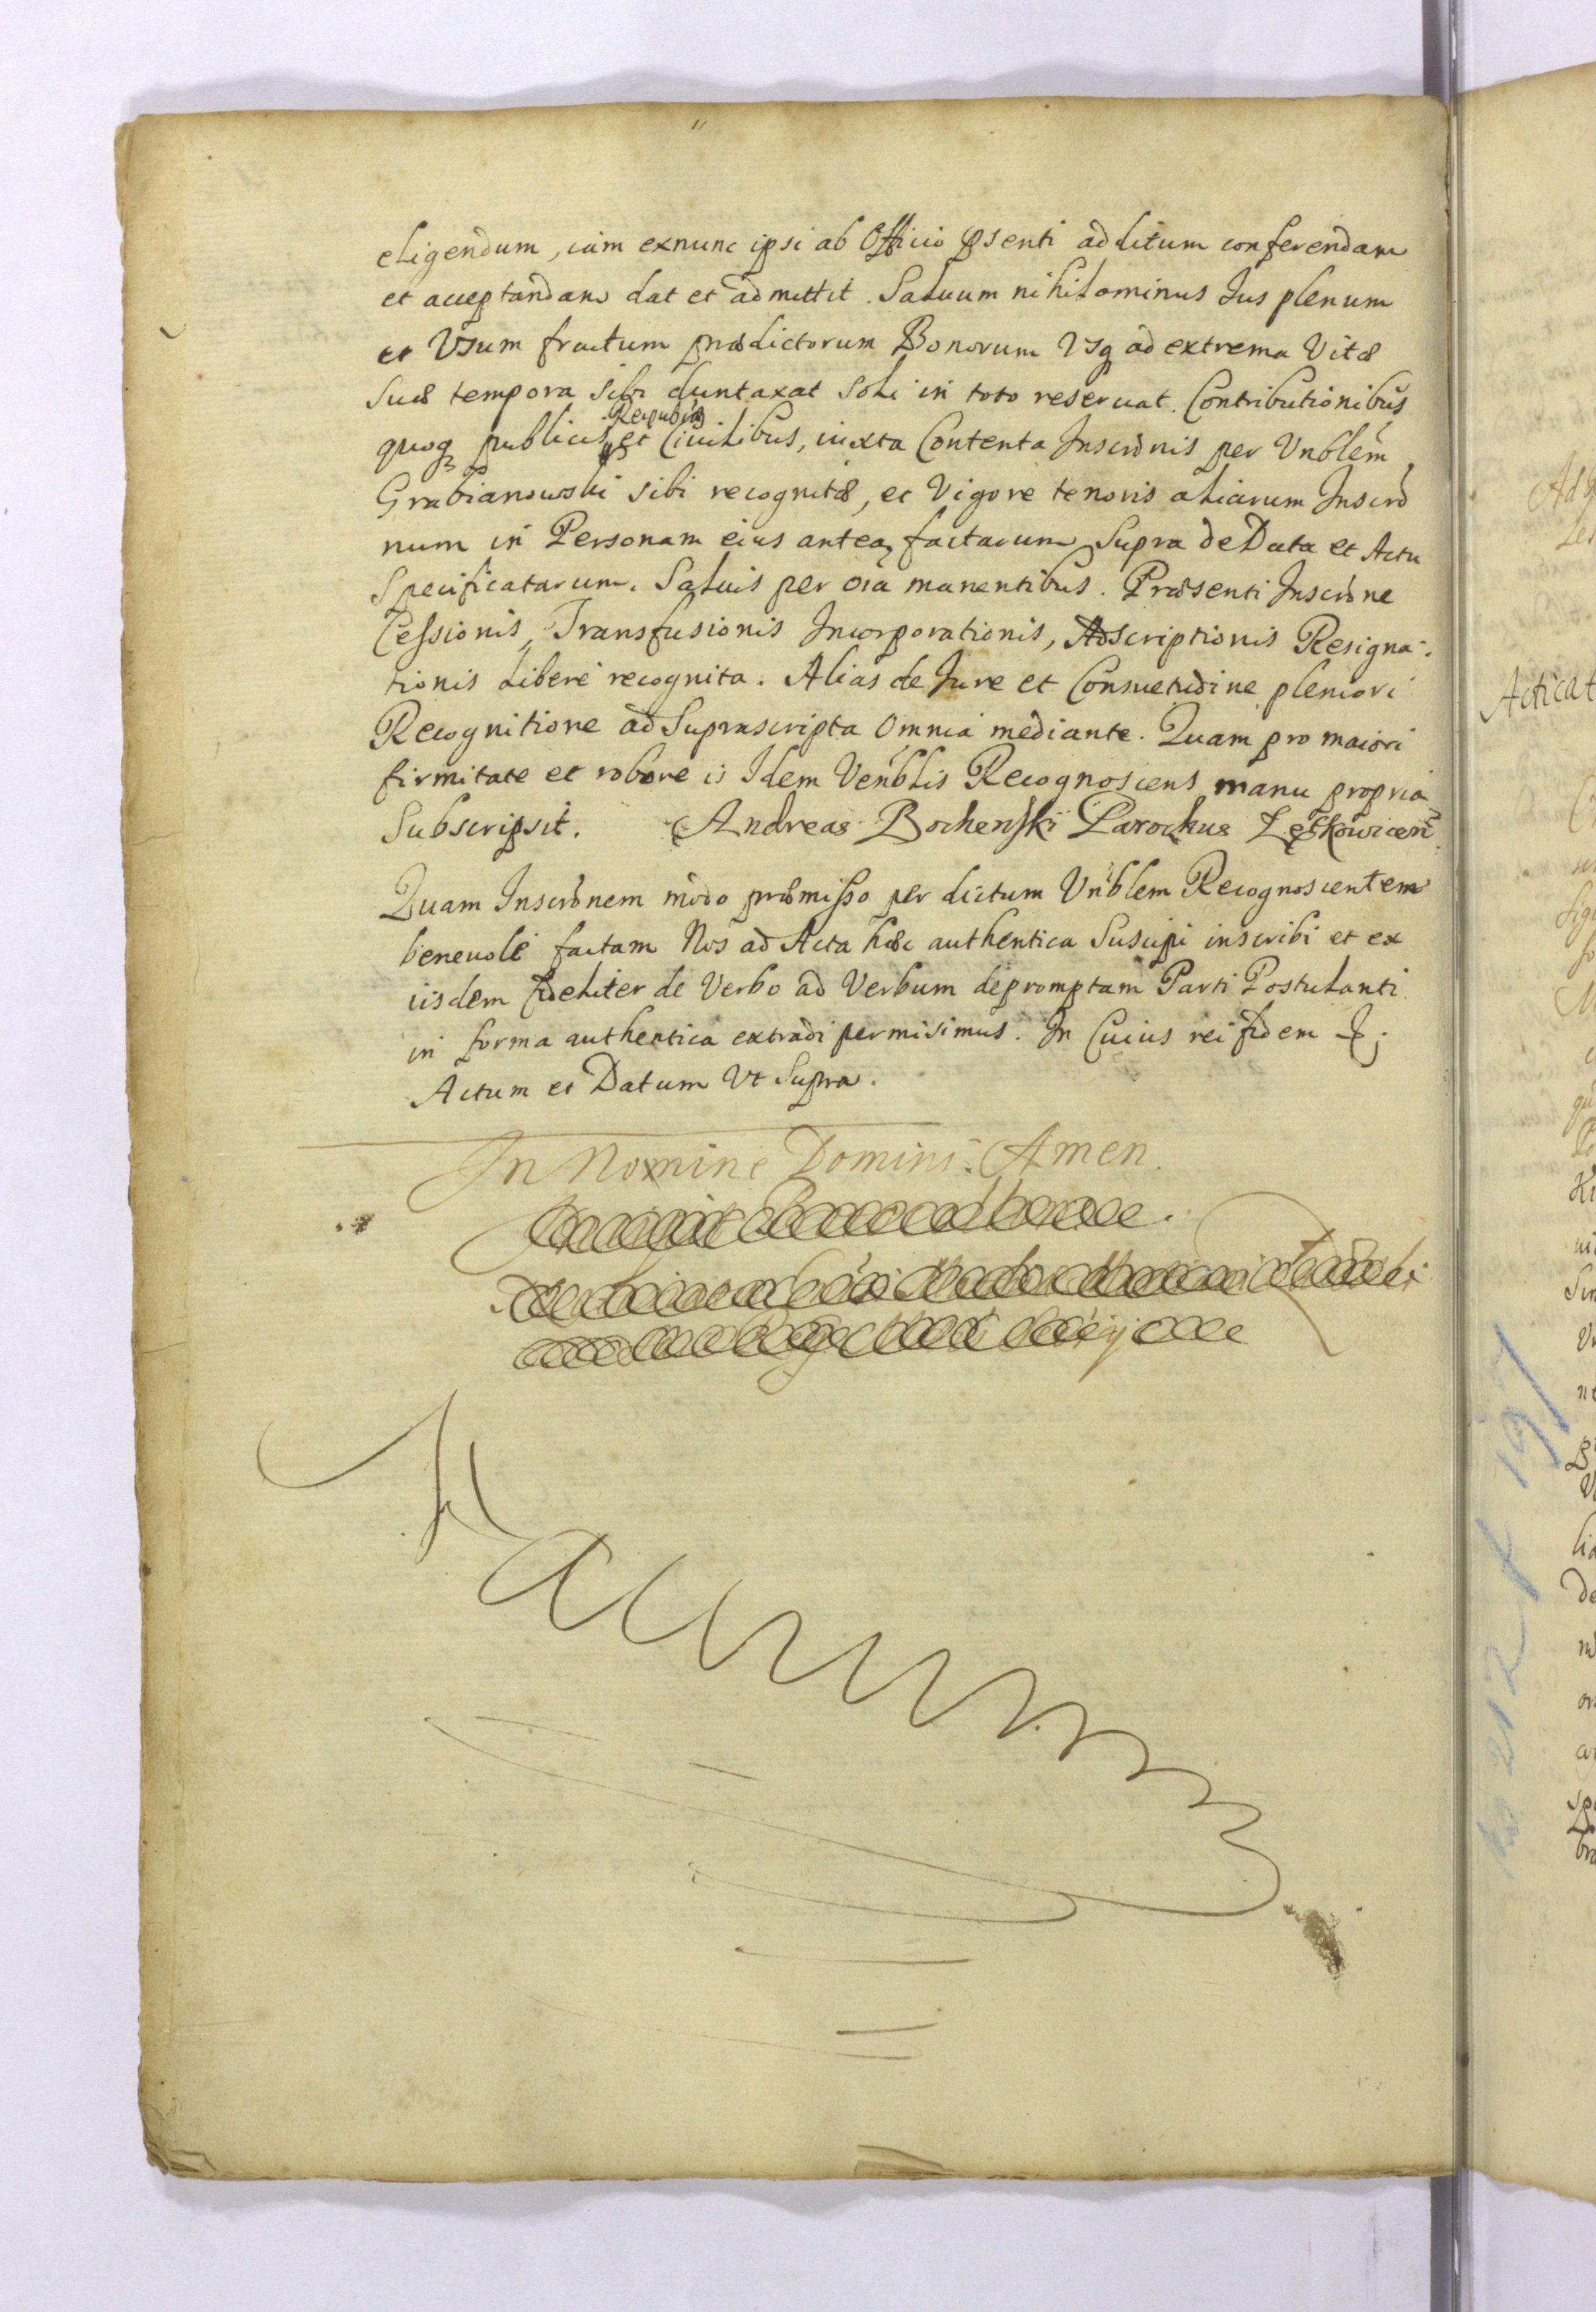 eligendum, iam exnunc ipsi ab Officio pꝛsenti additum conferendam
et acceptandam dat et admittit. Saluum nihilominus Ius plenum
et Vsum fructum prædictorum Bonorum Vsq ad extrema Vitæ
suæ tempora sibi duntaxat soli in toto reseruat. Contributionibus
Reipubcæ
quoq publicis et Ciuilibus, iuxta Contenta Inscrōnis per Vnblem
Grabianowski sibi recognitæ, et Vigore tenoris aliarum Inscrō
num in Personam eius antea factarum supra de Data et Actu
Specificatarum. Saluis per oīa manentibus. Præsenti Inscrōne
Cessionis, Transfusionis Incorporationis, Adscriptionis Resigna-
tionis Liberè recognita. Alias de Iure et Consuetudine pleniori
Recognitione ad Suprascripta Omnia mediante. Quam pro maiori
firmitate et robore is Idem Venblis Recognoscens manu propria
Subscripsit. Andreas Bochenski Parochus
Quam Inscrōnem modo præmisso per dictum Vnblem Recognoscentem
beneuolè factam Nos ad Acta hæc authentica Suscipi inscribi et ex
iisdem fideliter de Verbo ad Verbum depromptam Parti Postulanti
in forma authentica extradi permisimus. In Cuius rei fidem &;
Actum et Datum Vt Supra.
In Nomine Domini: Amen.